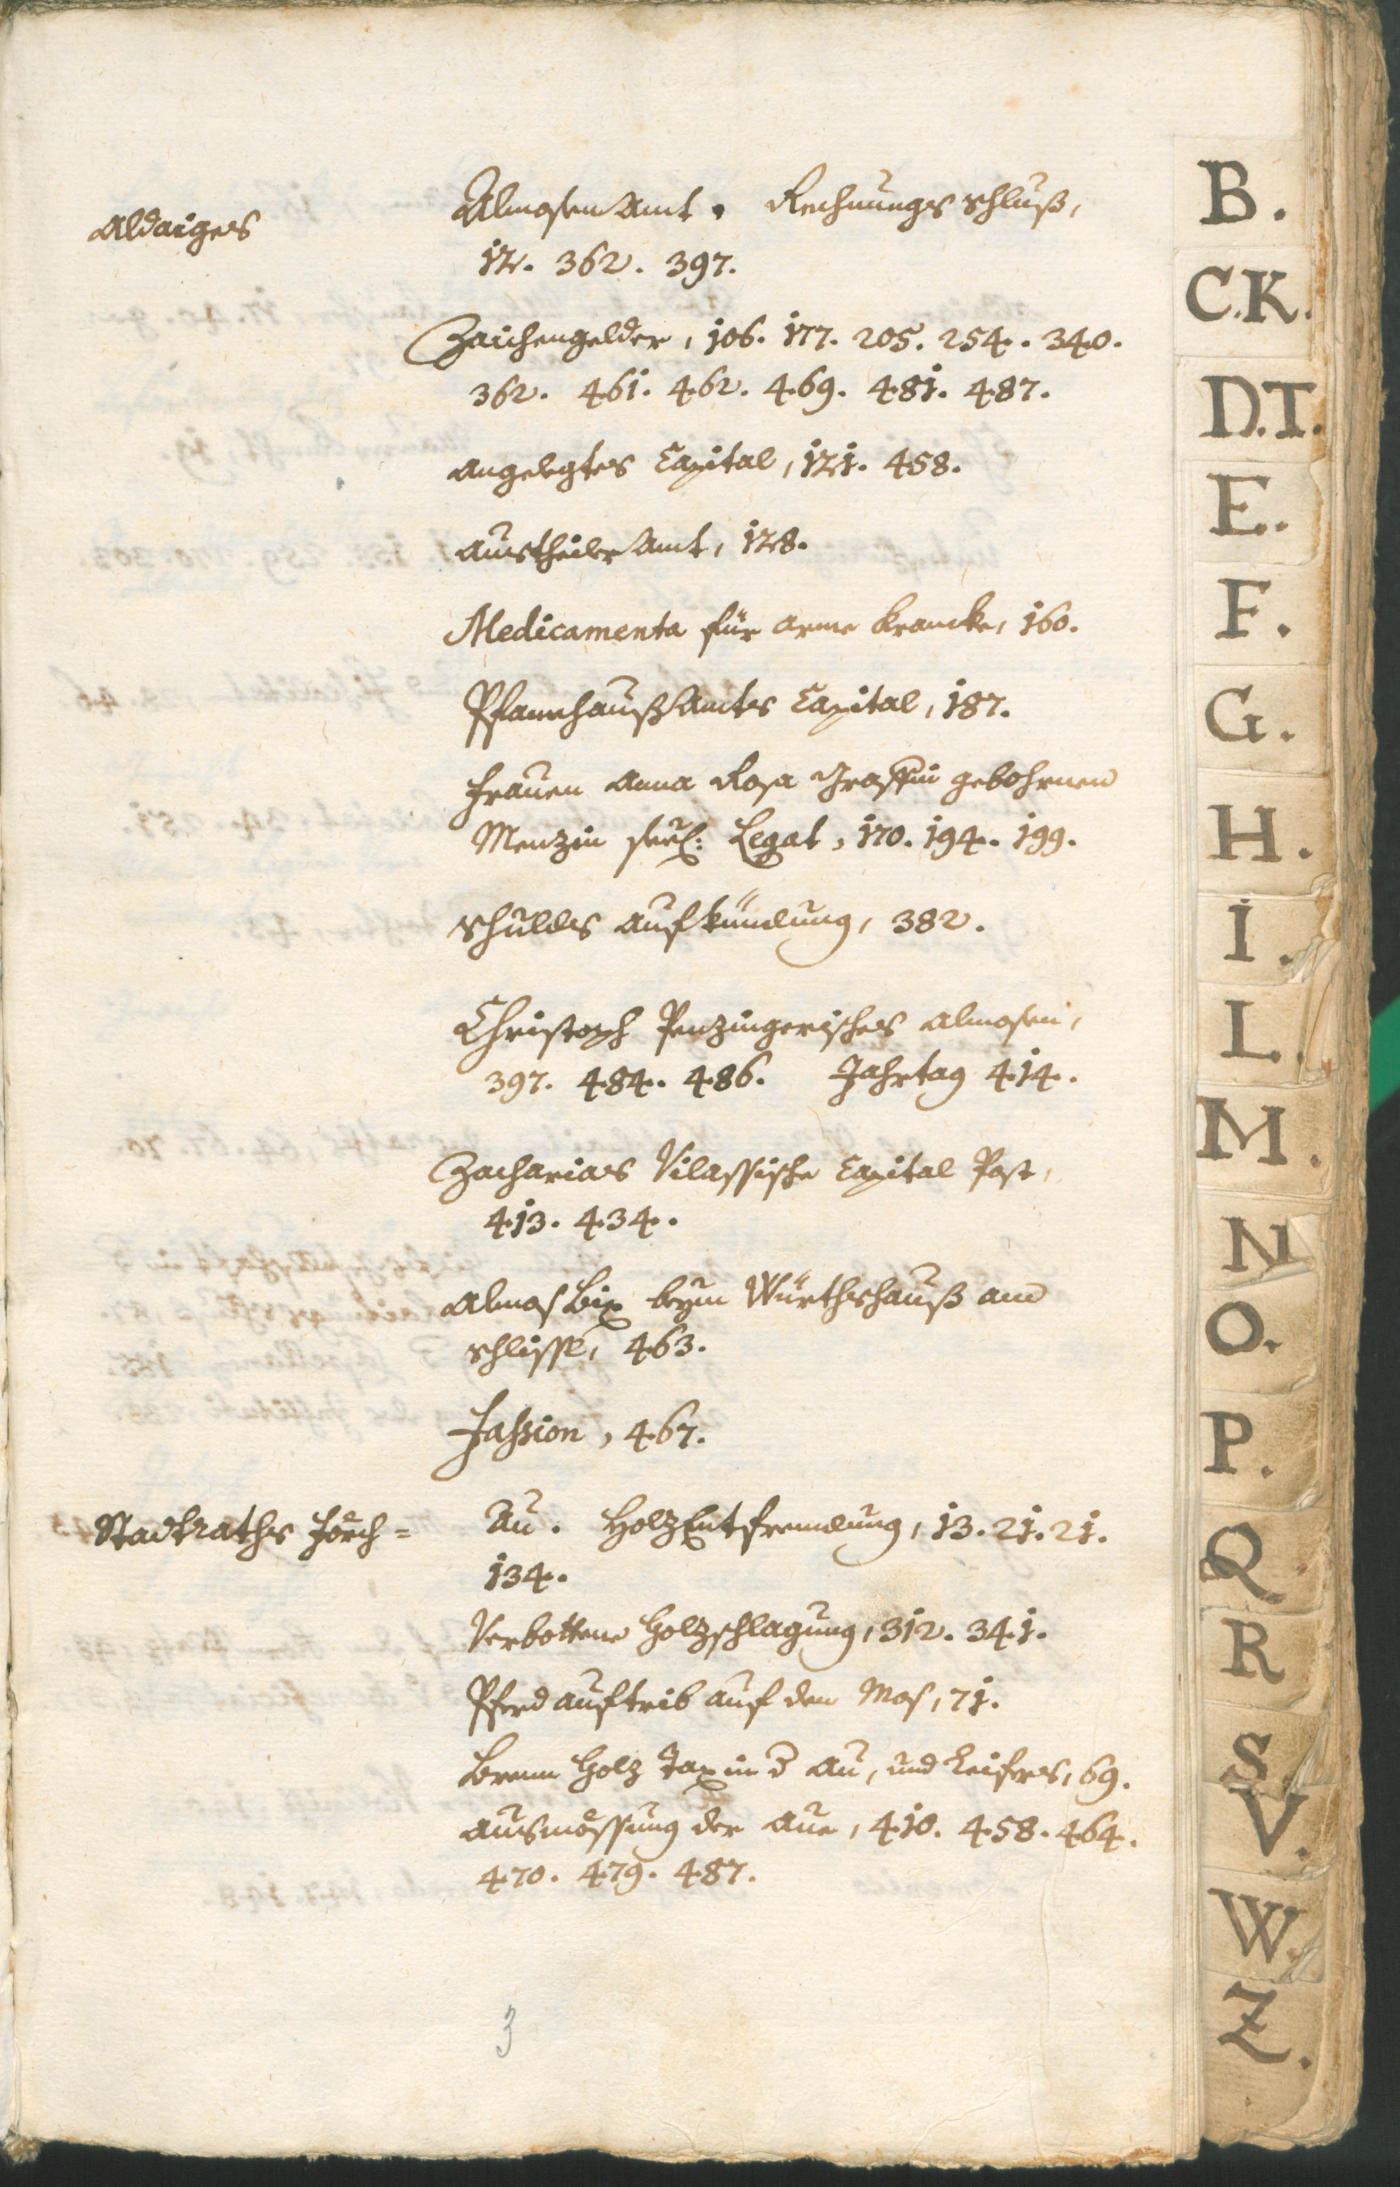 Aldaiges
Almosen Amt. Rechnungs schluß,
12. 362. 397.
Zaichengelder, 106. 177. 205. 254. 340.
362. 461. 462. 469. 481. 487.
angelegtes Capital, 121. 458.
austheiler Amt, 128.
Medicamenta für arme krancke, 160.
Pfannhauß Amtes Capital, 187.
frauen Anna Rosa gebohrnen
Menzin seel: Legat, 170. 194. 199.
schuldes aufkündung, 382.
Christoph Penzingerisches Almosen,
397. 484. 486. Jahrtag 414.
Zacharias Vilassische Capital Post,
413. 434.
Almos Bix beym Würthshauß am
schlissl, 463.
Fassion, 467.
Stadtraths Förch=
Au. Holz Entfremdung, 13. 21. 21.
134.
Verbottene Holzschlagung, 312. 341.
Pferd auftrib auf den Mos, 71.
Brenn Holz Tax in d Au, und Leifers, 69.
ausmössung der Aue, 410. 458. 464.
470. 479. 487.
3
B.
C.K.
D.T.
E.
F.
G.
H.
I.
L.
M.
N
O.
P.
Q.
R
S
V.
W.
Z.